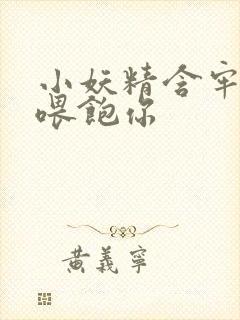 小妖精含牢
喂飽你
黄義寧